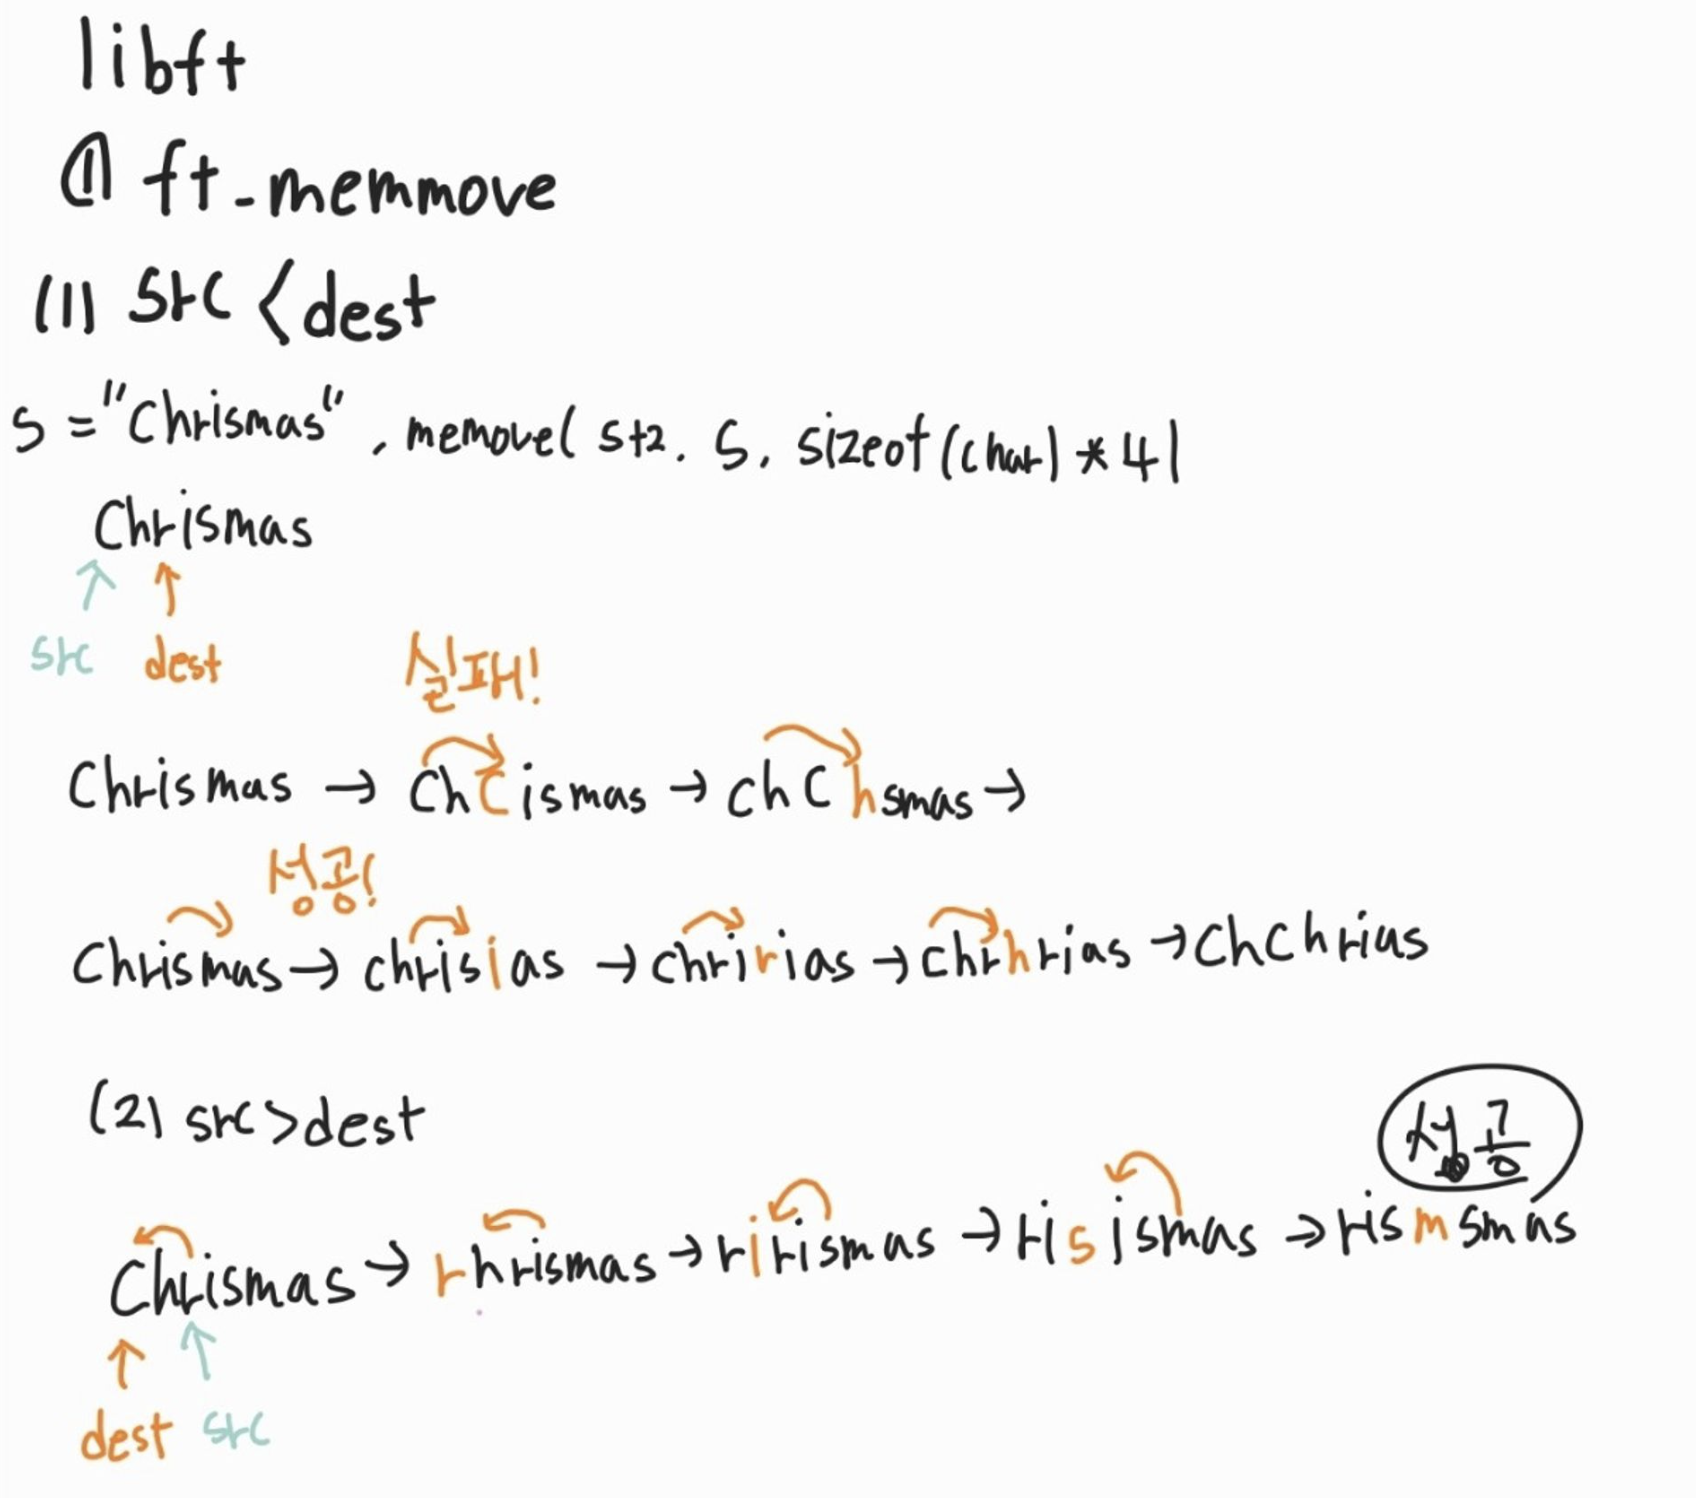 libft
① ft_memmove
(1) src < dest
s = "Chrismas", memove( s+2. S, sizeof(char) * 4)
Chrismas
src dest
실패!
Chrismas → ChCismas → chChsmas →
성공!
Chrismas → chrisias → chririas → chrhrias → ChChrias
(2) src > dest
성공
Chrismas → rhrismas → rirismas → risismas → rismsmas
dest src